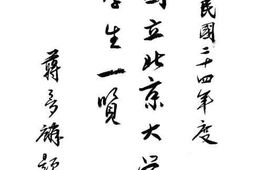 民國二十四年度
國立北京大學
學生一覽
蔣夢麟題